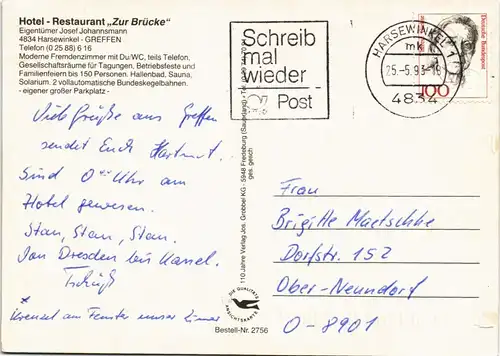 Hotel - Restaurant „Zur Brücke"
Eigentümer Josef Johannsmann
4834 Harsewinkel - GREFFEN
Telefon (0 25 88) 6 16
Moderne Fremdenzimmer mit Du/WC, teils Telefon,
Gesellschaftsräume für Tagungen, Betriebsfeste und
Familienfeiern bis 150 Personen. Hallenbad, Sauna,
Solarium. 2 vollautomatische Bundeskegelbahnen.
- eigener großer Parkplatz -
Viele Grüße aus Greffen
sendet Euch Hartmut.
Sind 0 Uhr am
Hotel gewesen.
Stau, Stau, Stau.
Von Dresden bis Kassel.
Tschüß
x
Kreuzel am Fenster unser Zimmer
110 Jahre Verlag Jos. Grobbel KG - 5948 Fredeburg (Sauerland)
ges. gesch.
DIE QUALITÄTS
ANSICHTSKARTE
Bestell-Nr. 2756
Schreib
mal
wieder
Post
HARSEWINKEL 1
mk
25.-5.93-18
4834
Deutsche Bundespost
100
Frau
Brigitte Maetschke
Dorfstr. 152
Ober-Neundorf
O-8901